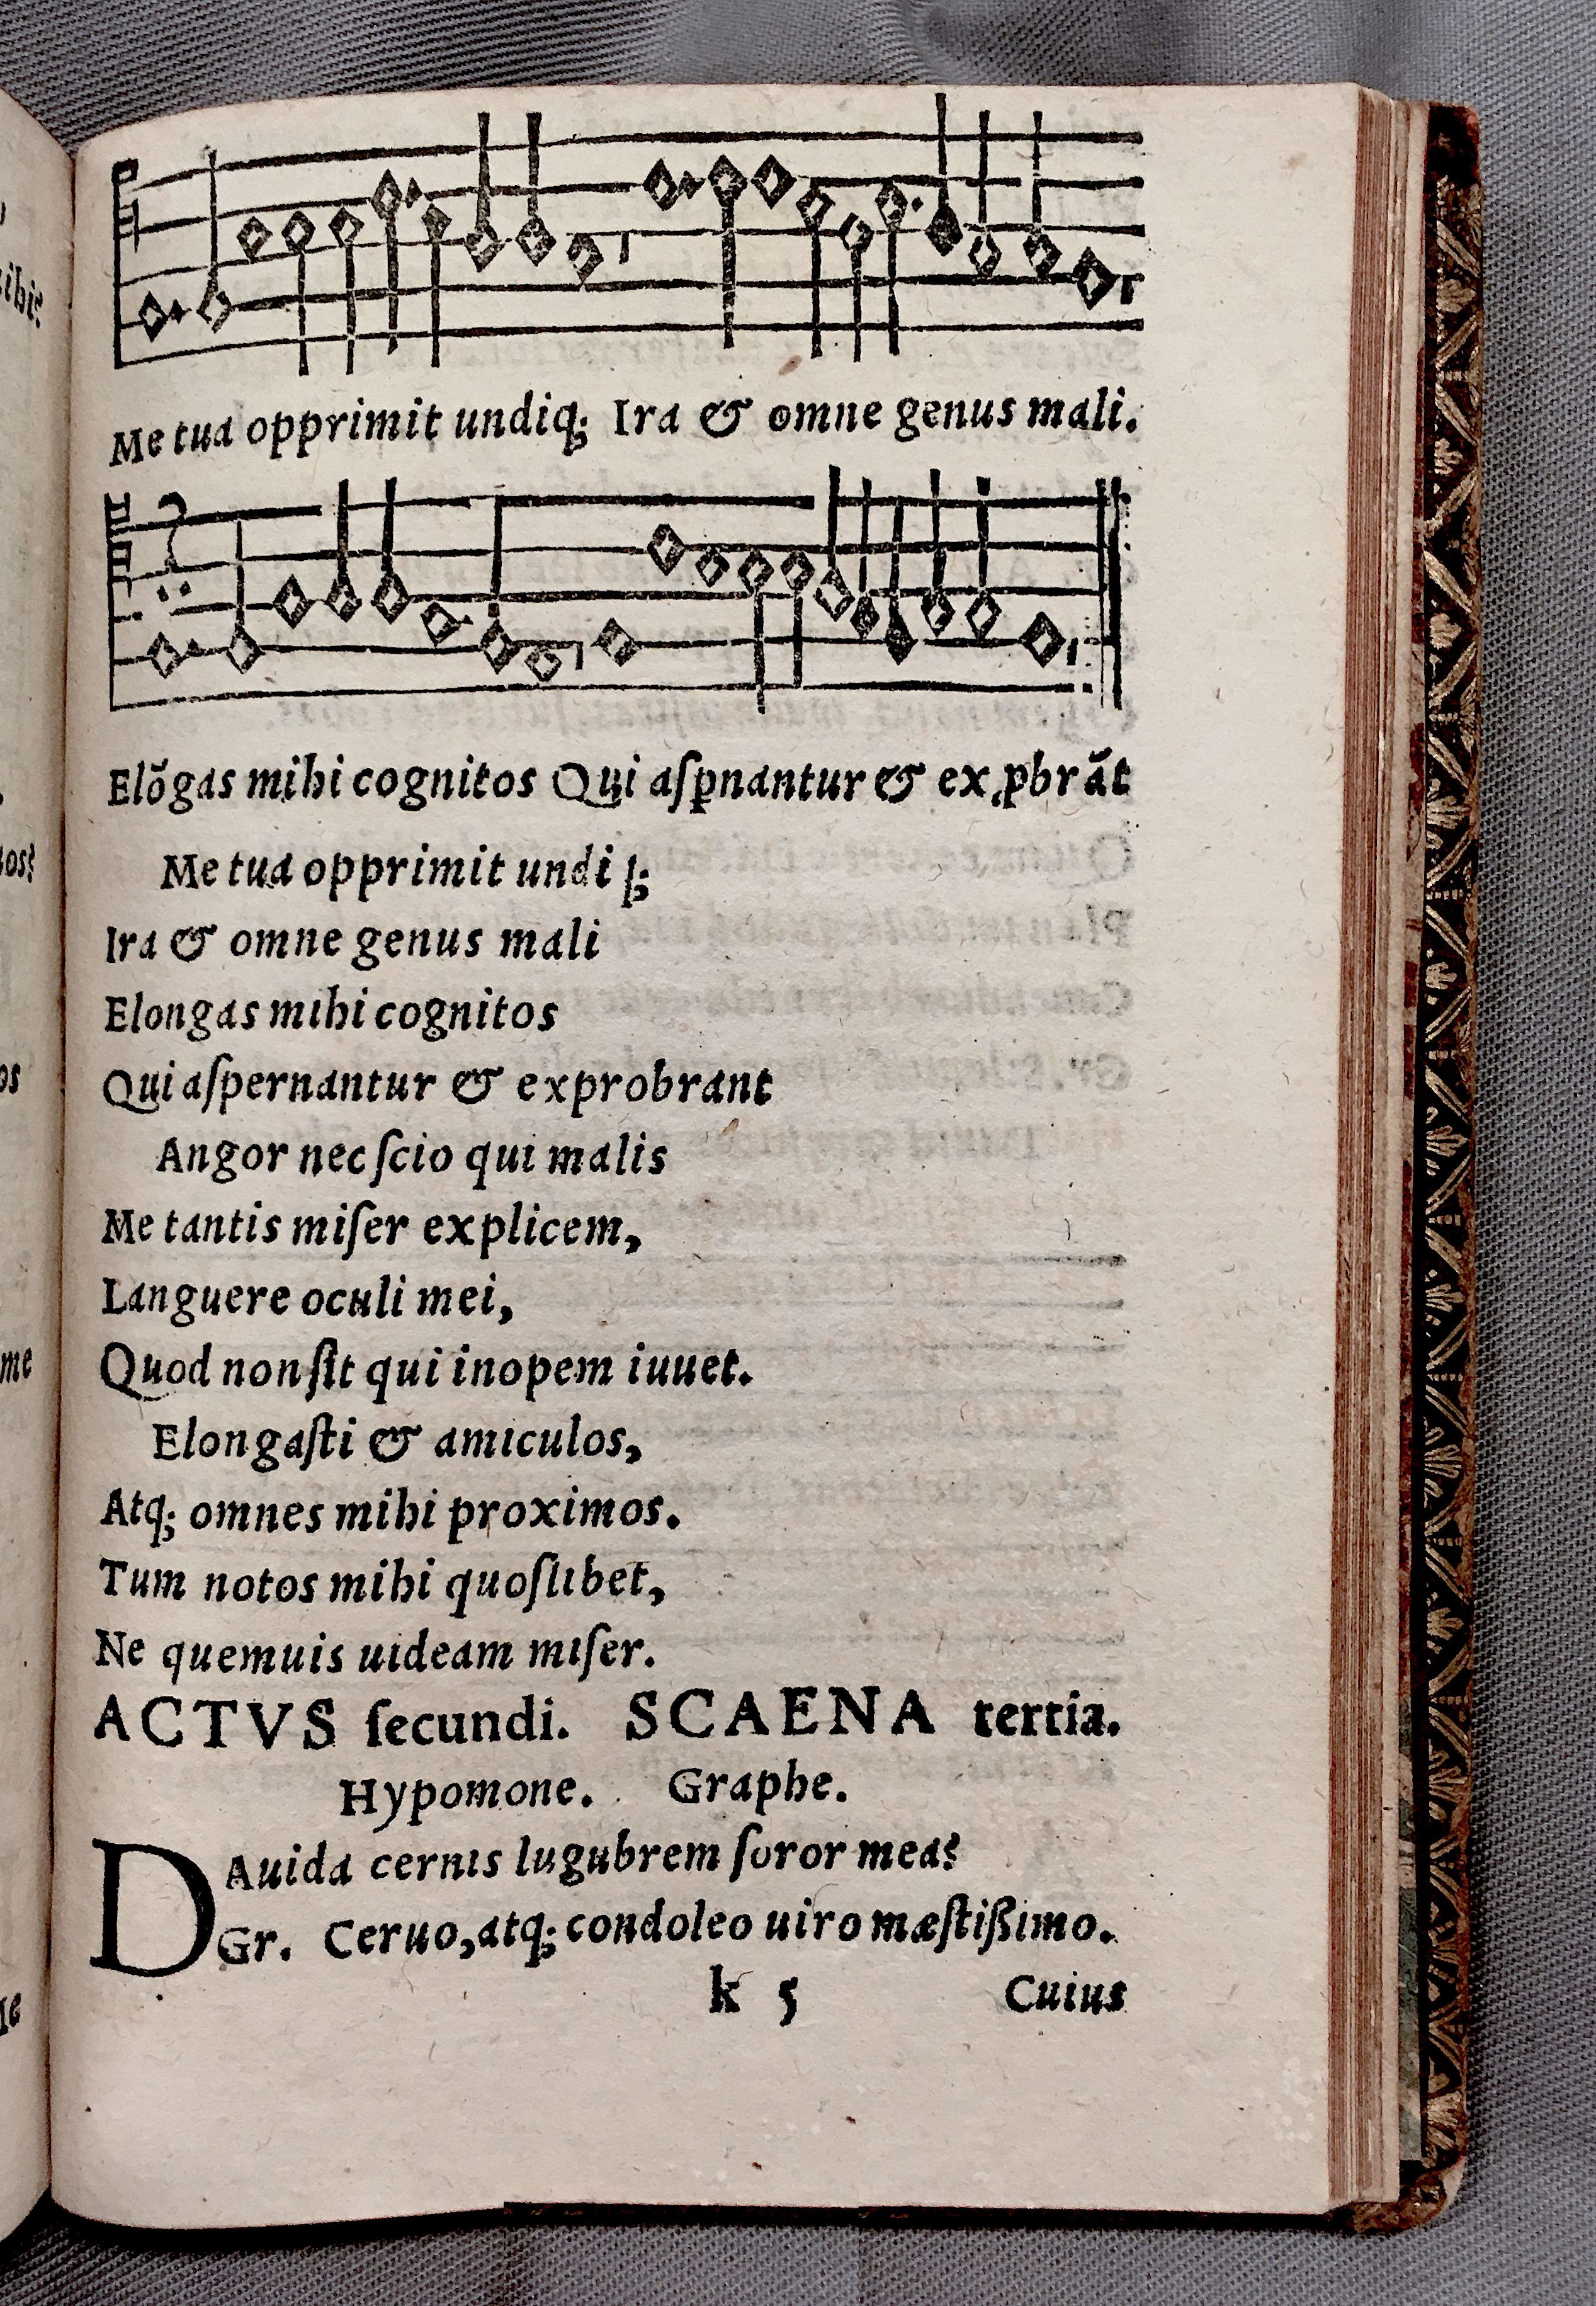 Me tua opprimit undiq; Ira & omne genus mali.
Elõgas mihi cognitos Qui aſp̱nantur & exꝓbrãt
Me tua opprimit undi q;
Ira & omne genus mali
Elongas mihi cognitos
Qui aſpernantur & exprobrant
Angor nec ſcio qui malis
Me tantis miſer explicem,
Languere oculi mei,
Quod non ſit qui inopem iuuet.
Elongaſti & amiculos,
Atq; omnes mihi proximos.
Tum notos mihi quoſlibet,
Ne quemuis uideam miſer.
ACTVS ſecundi. SCAENA tertia.
Hypomone. Graphe.
DAuida cernis lugubrem ſoror mea?
Gr. Ceruo, atq; condoleo uiro mæſtißimo.
k 5 Cuius